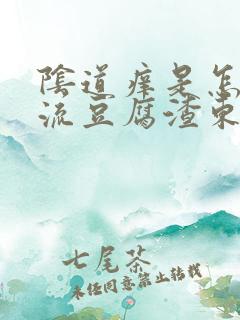 陰道痒是怎
流豆腐渣東
七尾茶
未经同意禁止转载